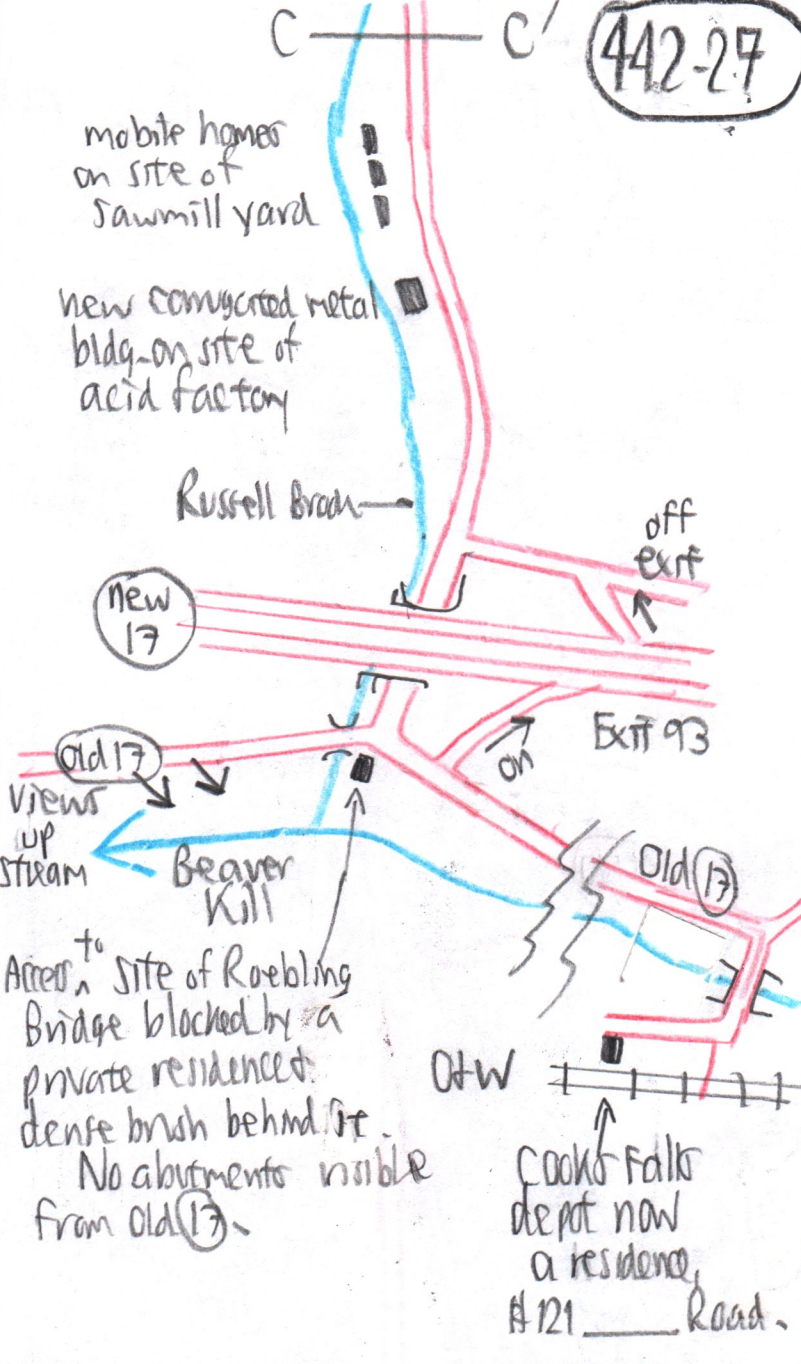 C C'
442-27
mobile homes
on site of
sawmill yard
new corrugated metal
bldg. on site of
acid factory
Russell Brook
off
exit
new
17
Old 17
on
Exit 93
views
up
stream
Beaver
Kill
Old 17
Access to site of Roebling
Bridge blocked by a
private residence &
dense brush behind it.
No abutments visible
from Old 17.
O+W
Cooks Falls
depot now
a residence,
#121 ____ Road.